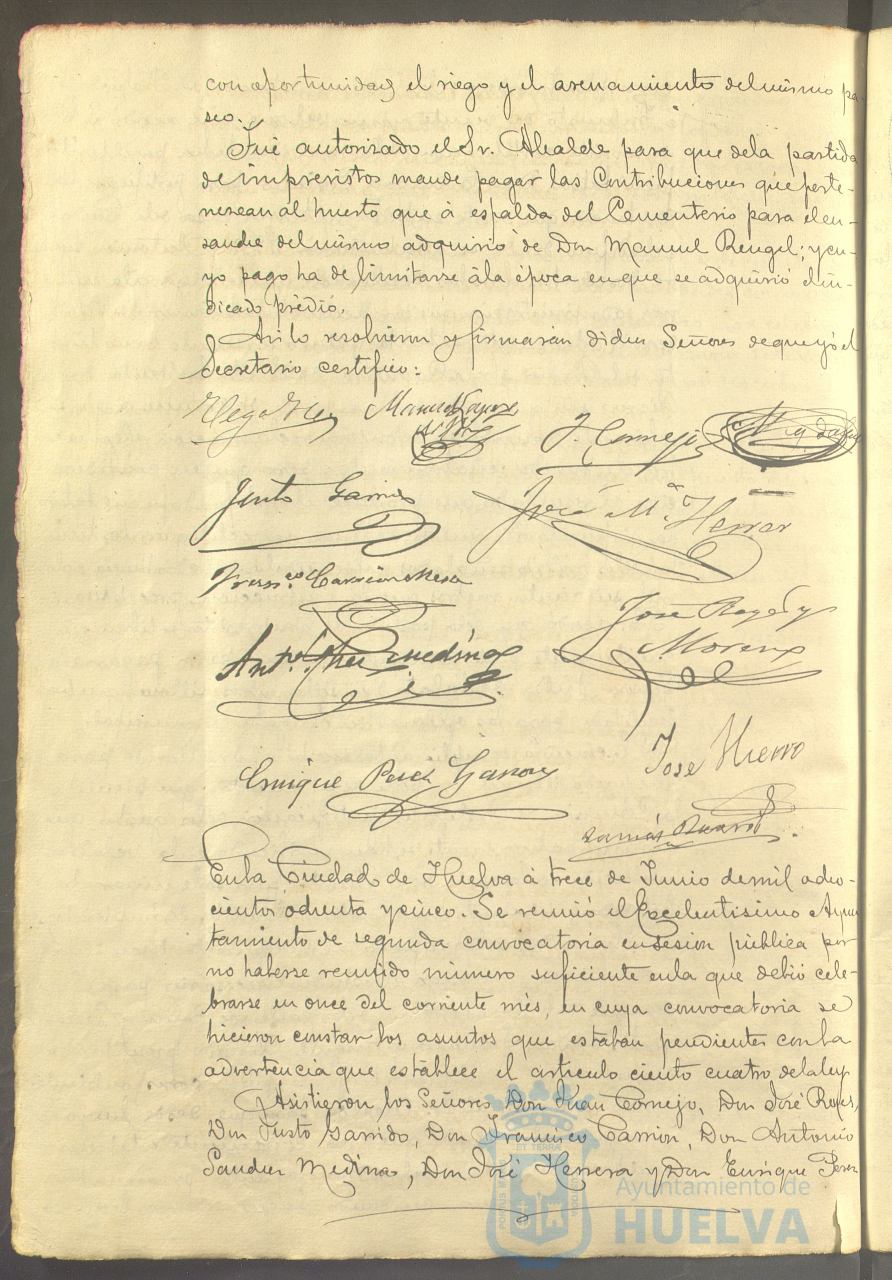 con oportunidad el riego y el arenamiento del mismo pa-
seo.
Fué autorizado el Sr. Alcalde para que dela partida
de imprevistos mande pagar las Contribuciones que perte-
nezcan al huerto que á espalda del Cementerio para el en-
sanche del mismo adquirió de Don Manuel Rengel; y cu-
yo pago ha de limitarse á la época en que se adquirió el in-
dicado prédio.
Asi lo resolvieron y firmarán dichos Señores de que yo el
Secretario certifico:
J. Cornejo
Justo Garrido
José Mª Herrer
Franco. Carrion Mesa
José Rogés y
Moreno
Anto.
Enrique Perez
José Hierro
En la Ciudad de Huelva á trece de Junio de mil ocho-
cientos ochenta y cinco. Se reunió el Excelentisimo Ayun-
tamiento de segunda convocatoria en sesion pública por
no haberse reunido número suficiente en la que debió cele-
brarse en once del corriente més, en cuya convocatoria se
hicieron constar los asuntos que estaban pendientes con la
advertencia que establece el articulo ciento cuatro de la ley
Asistieron los Señores Don Juan Cornejo, Don José Roges,
Don Justo Garrido, Don Francisco Carrion, Don Antonio
Sanchez Medina, Don José Herrera y Don Enrique Perez
Ayuntamiento de
HUELVA